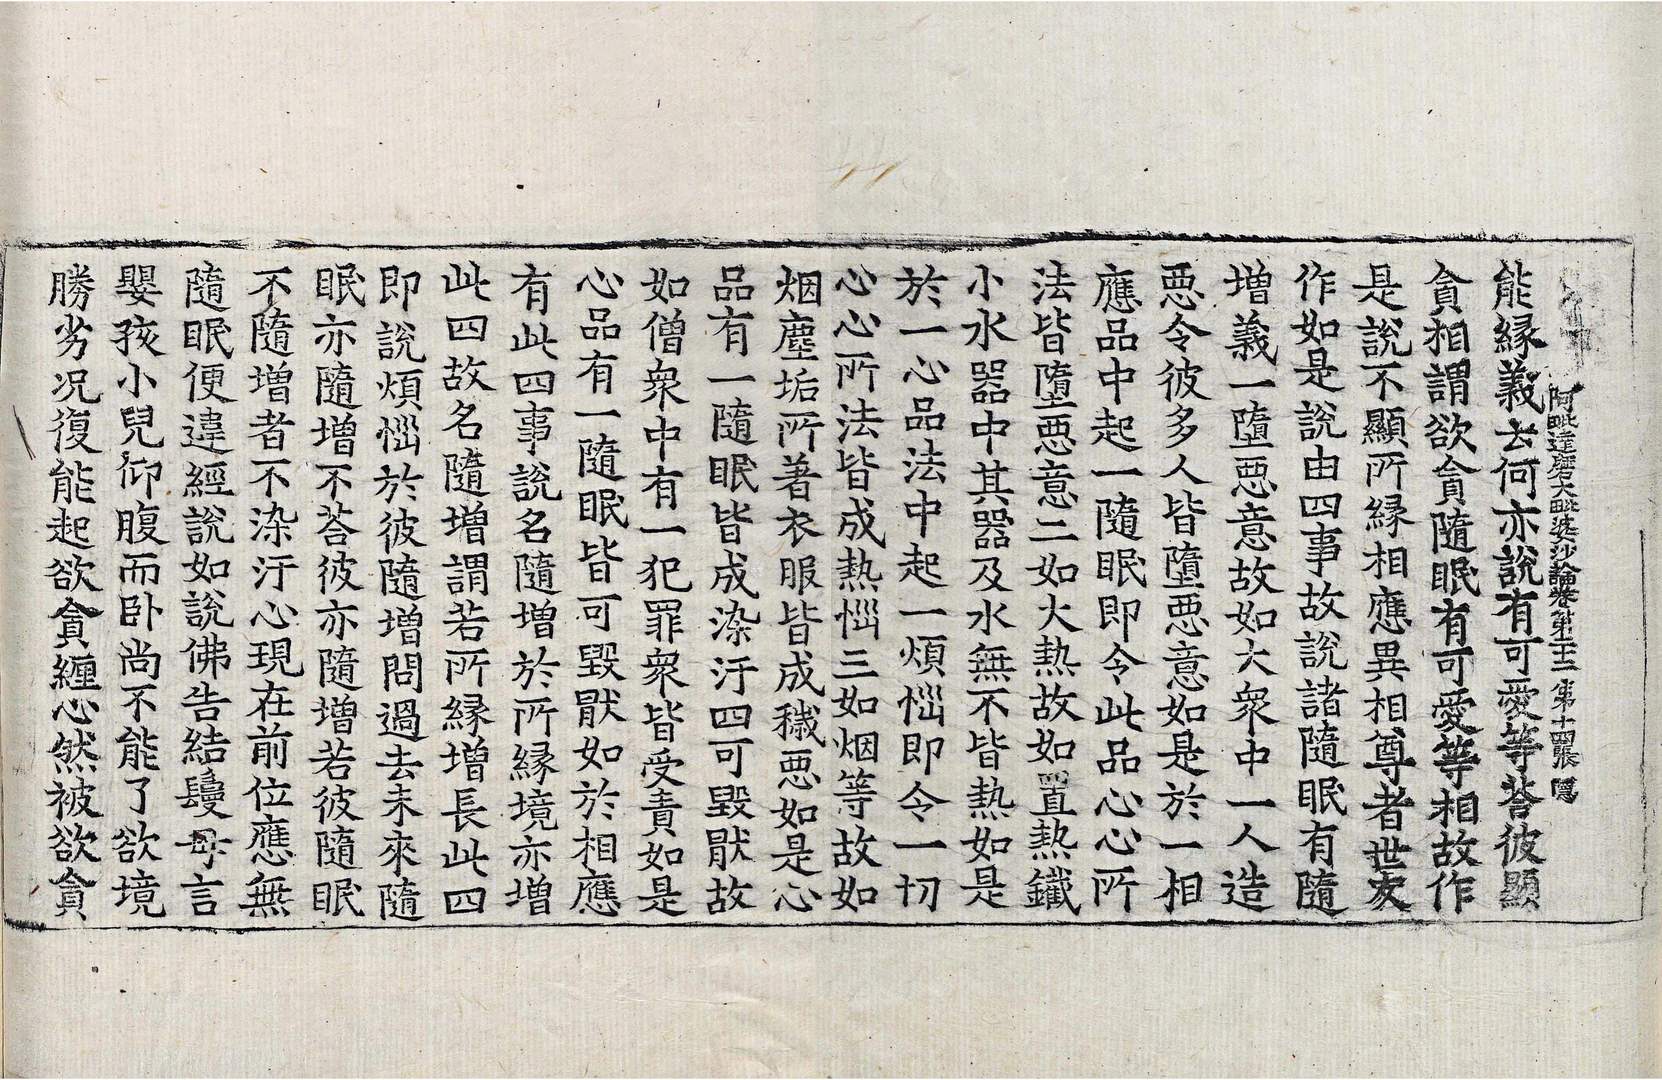 阿毗達磨大毗婆沙論卷第二十二 第十四張 隱
能縁義云何亦說有可愛等荅彼顯
貪相謂欲貪隨眠有可愛等相故作
是說不顯所縁相應異相尊者世友
作如是說由四事故說諸隨眠有隨
增義一墮惡意故如大衆中一人造
惡令彼多人皆墮惡意如是於一相
應品中起一隨眠即令此品心心所
法皆墮惡意二如火熱故如置熱鐵
小水器中其器及水無不皆熱如是
於一心品法中起一煩惱即令一切
心心所法皆成熱惱三如烟等故如
烟塵垢所著衣服皆成穢惡如是心
品有一隨眠皆成染汙四可毀猒故
如僧衆中有一犯罪衆皆受責如是
心品有一隨眠皆可毀猒如於相應
有此四事說名隨增於所縁境亦增
此四故名隨增謂若所縁增長此四
即說煩惱於彼隨增問過去未來隨
眠亦隨增不荅彼亦隨增若彼隨眠
不隨增者不染汙心現在前位應無
隨眠便違經說如說佛告結鬘母言
嬰孩小兒仰腹而卧尚不能了欲境
勝劣况復能起欲貪纏心然被欲貪